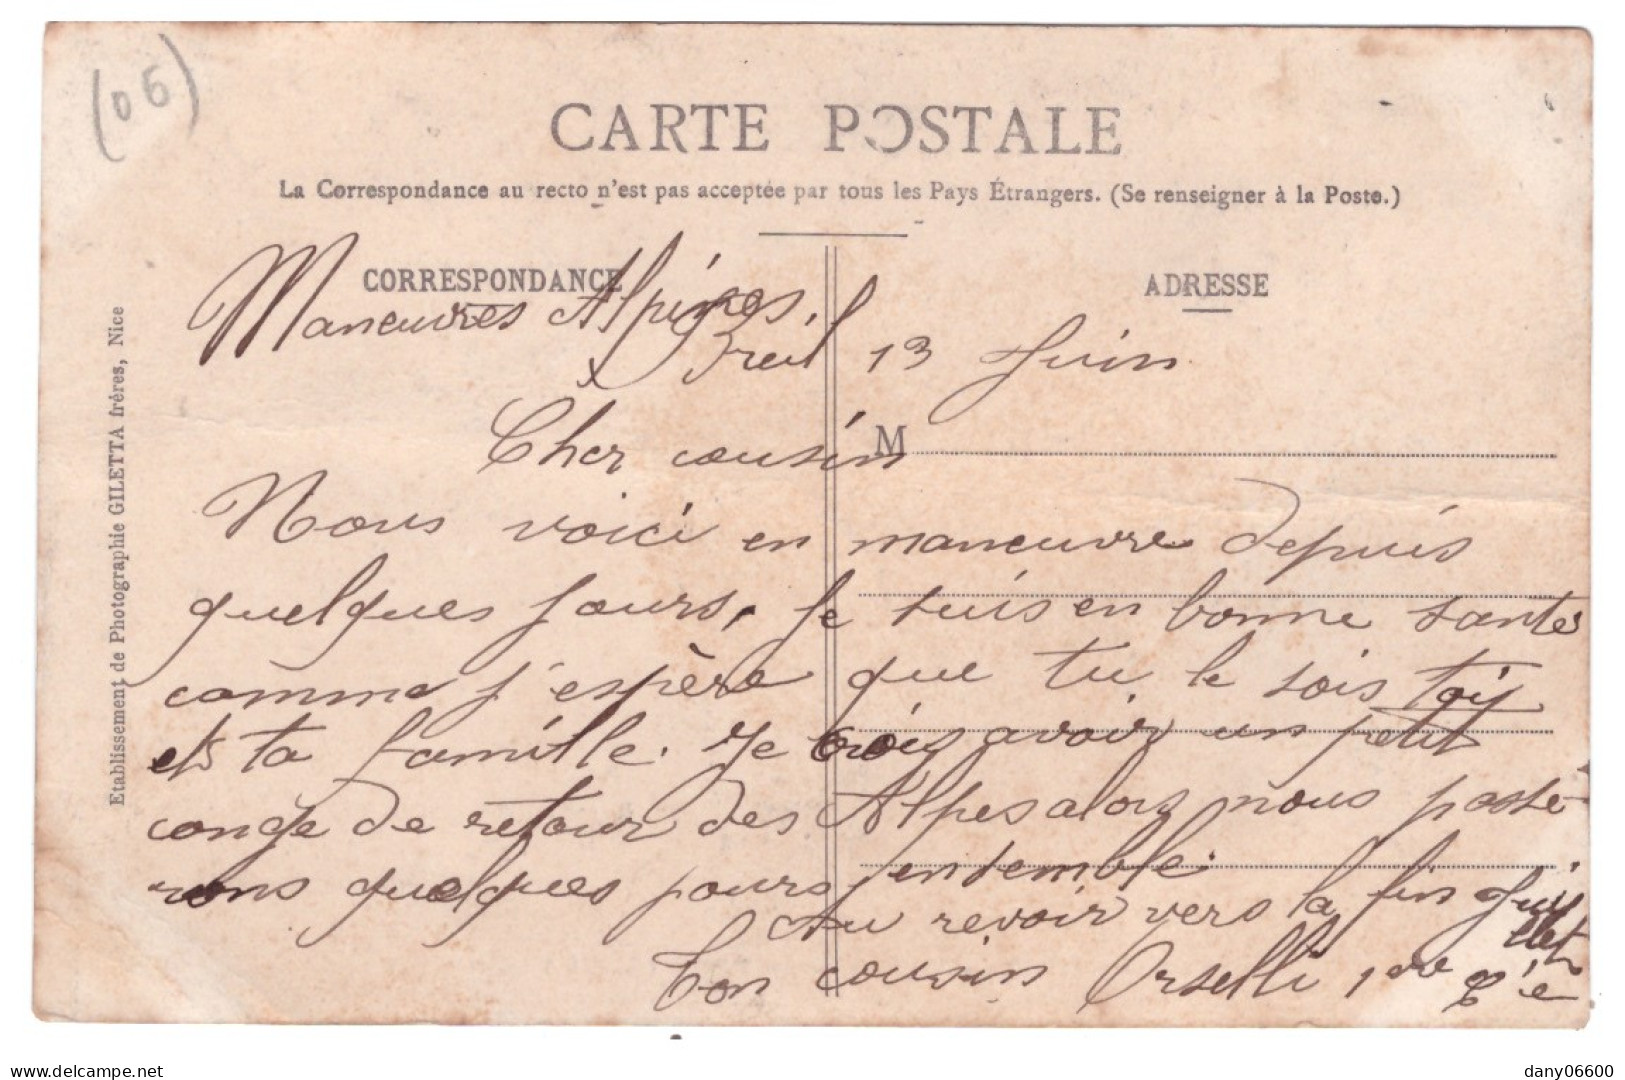 (06)
CARTE POSTALE
La Correspondance au recto n'est pas acceptée par tous les Pays Étrangers. (Se renseigner à la Poste.)
CORRESPONDANCE
ADRESSE
Etablissement de Photographie GILETTA frères, Nice
Maneuvres Alpines.
Breil 13 Juin
M
Cher cousin
Nous voici en maneuvre depuis
quelques jours, je suis en bonne santé
comme j'espère que tu le sois toi
et ta famille. Je crois avoir un petit
conge de retour des Alpes alors nous passe-
rons quelques jours ensemble.
Au revoir vers la fin Juillet
Ton cousin Orselli 1ere Cie
www.delcampe.net
dany06600